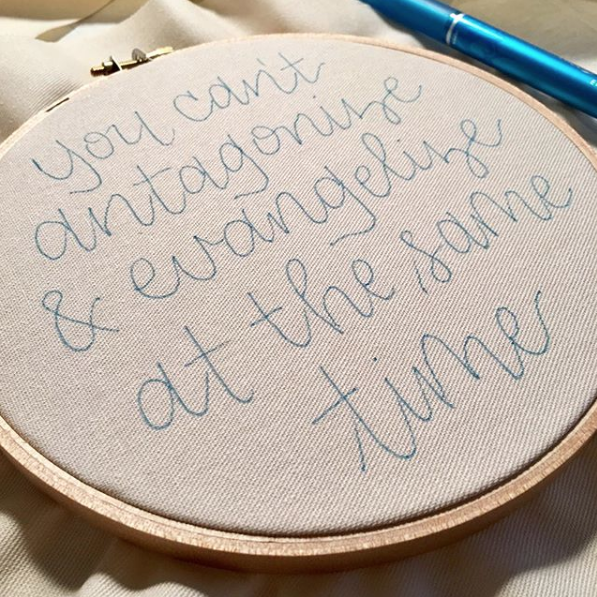 you can't
antagonize
& evangelize
at the same
time